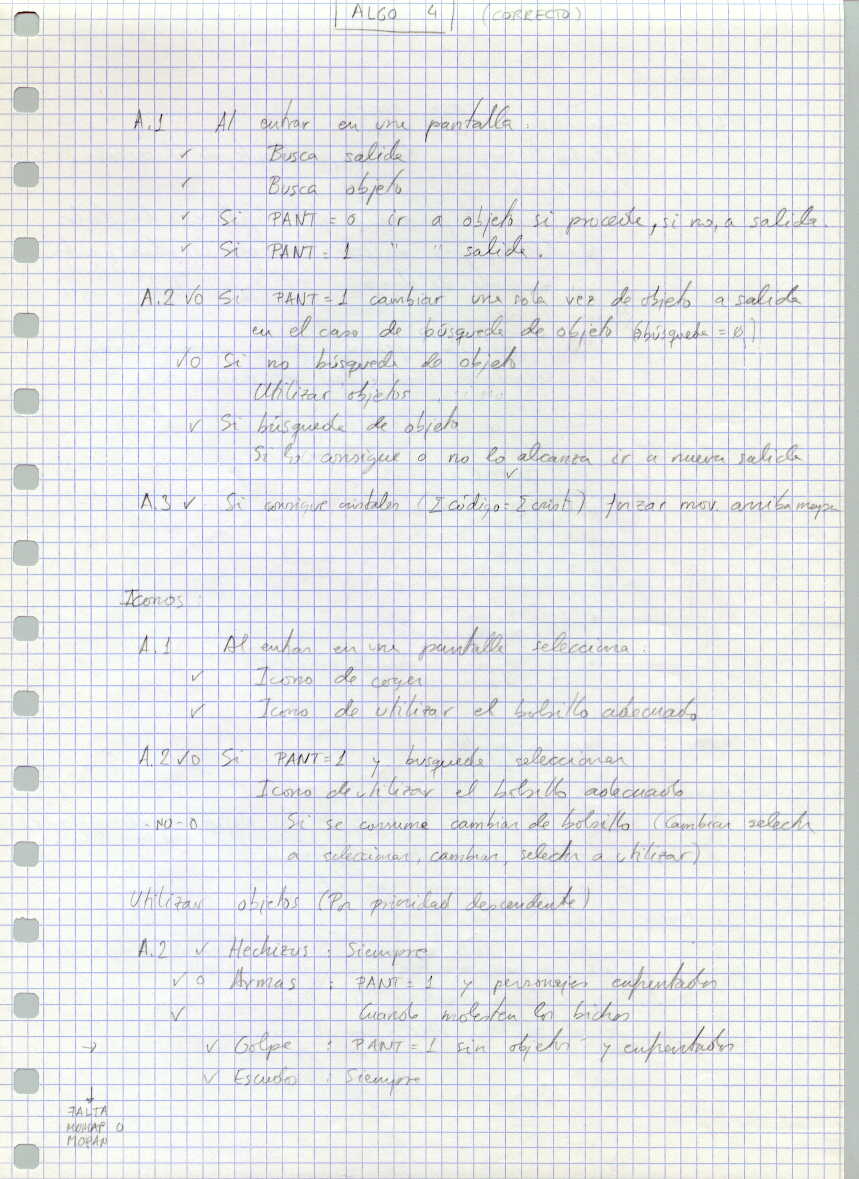 ALGO 4 (CORRECTO)
A.1 Al entrar en una pantalla.
✓ Busca salida
✓ Busca objeto
✓ Si PANT = 0 ir a objeto si procede, si no, a salida.
✓ Si PANT = 1 " " salida.
A.2 ✓0 Si PANT=1 cambiar una sola vez de objeto a salida
en el caso de búsqueda de objeto (búsqueda = 0)
✓0 Si no búsqueda de objeto
Utilizar objetos
✓ Si búsqueda de objeto
Si lo consigue o no lo alcanza ir a nueva salida
✓
A.3 ✓ Si consigue cristales (Σ código = Σ crist) forzar mov. arriba mapa
Iconos:
A.1 Al entrar en una pantalla selecciona:
✓ Icono de coger
✓ Icono de utilizar el bolsillo adecuado
A.2 ✓0 Si PANT=1 y busqueda seleccionar
Icono de utilizar el bolsillo adecuado
-NO-0 Si se consume cambiar de bolsillo (Cambiar selecth
a seleccionar, cambiar, selecth a utilizar)
Utilizar objetos (Por prioridad descendente)
A.2 ✓ Hechizos : Siempre
✓0 Armas : PANT=1 y personajes enfrentados
✓ Cuando molesten los bichos
→ ✓ Golpe : PANT=1 sin objetos y enfrentados
✓ Escudos : Siempre
↓
FALTA
MOMAP O
MOPAN